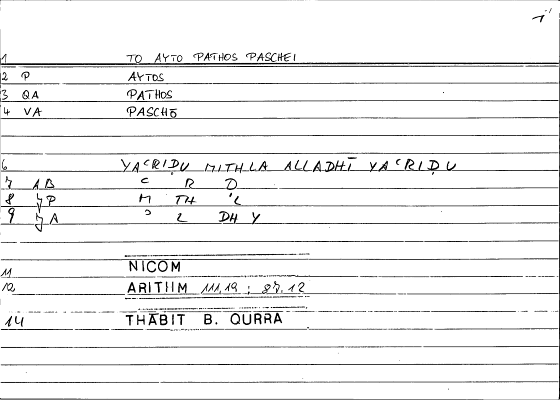 1 TO AYTO PATHOS PASCHEI
2 P AYTOS
3 QA PATHOS
4 VA PASCHŌ
6 YAʿRIḌU MITHLA ALLADHĪ YAʿRIḌU
7 AB ʿ R Ḍ
8 P M TH L
9 A ʾ L DH Y
11 NICOM
12 ARITIIM 111,19 ; 87,12
14 THĀBIT B. QURRA